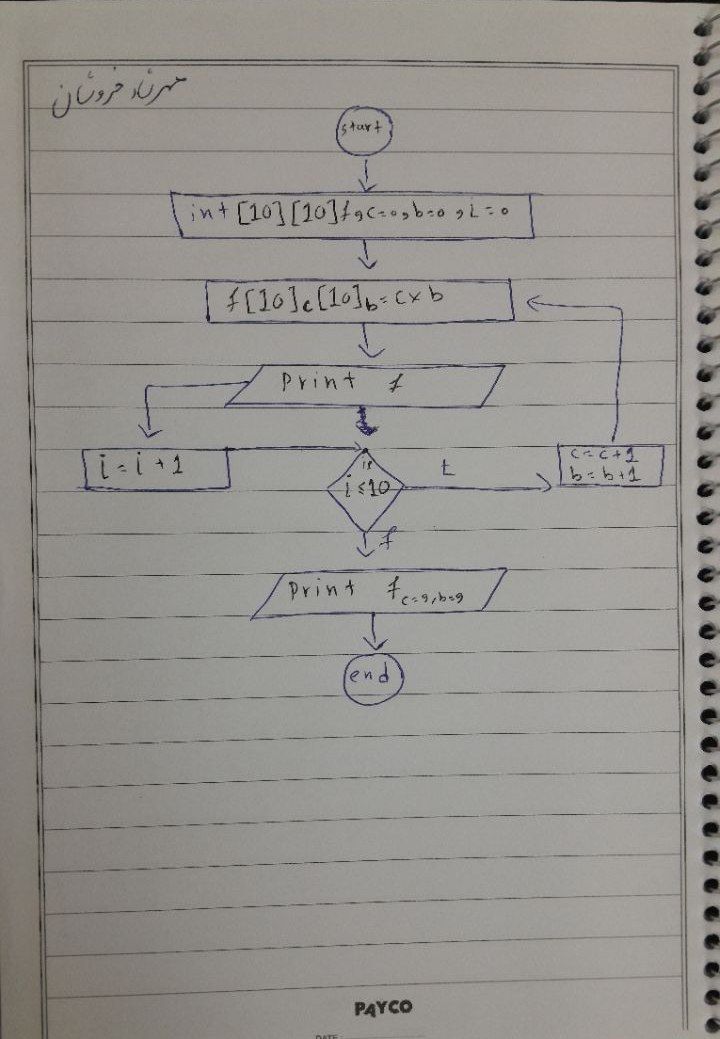 مهرشاد خروشان
start
int [10][10] f, c=0, b=0, i=0
f[10]c[10]b = c×b
Print f
i = i + 1
is
i ≤ 10
t
c = c+1
b = b+1
f
Print f c=9, b=9
end
PAYCO
DATE: